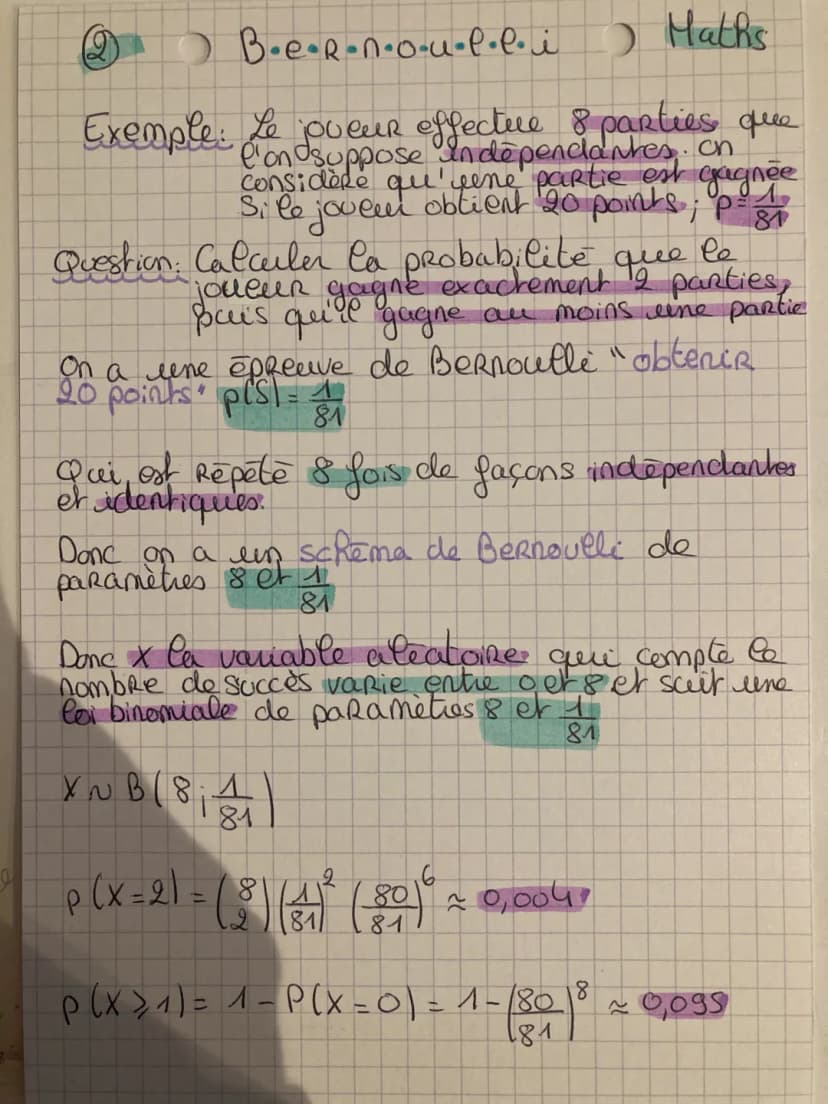 ② Bernoulli Maths
Exemple: Le joueur effectue 8 parties que
l'on suppose indépendantes. On
considère qu'une partie est gagnée
Si le joueur obtient 20 points; p=1/81
Question: Calculer la probabilité que le
joueur gagne exactement 2 parties,
puis qu'il gagne au moins une partie
On a une épreuve de Bernoulli "obtenir
20 points" p(S)=1/81
Qui est répété 8 fois de façons indépendantes
et identiques.
Donc on a un schéma de Bernoulli de
paramètres 8 et 1/81
Donc X la variable aléatoire qui compte le
nombre de succès varie entre 0 et 8 et suit une
loi binomiale de paramètres 8 et 1/81
X ~ B(8; 1/81)
p(X=2) = (8 2)(1/81)² (80/81)⁶ ≈ 0,004
p(X⩾1) = 1 - P(X=0) = 1-(80/81)⁸ ≈ 0,095